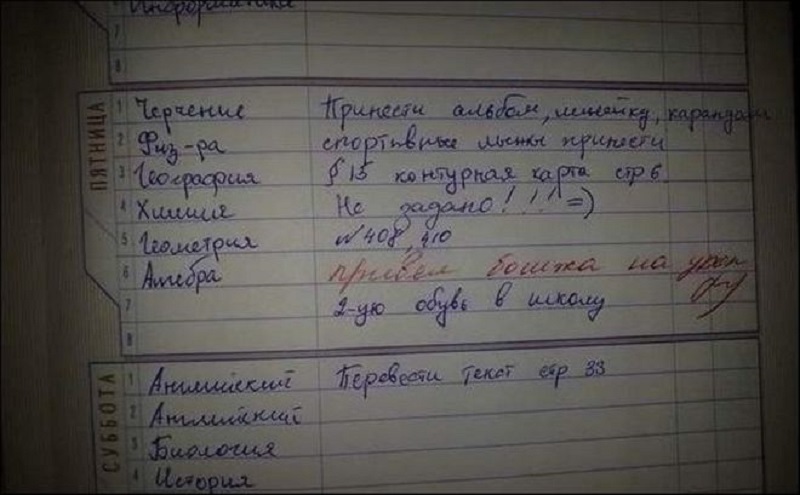 Информатика
7
8
ПЯТНИЦА
1 Черчение Принести альбом, линейку, карандаш
2 Физ-ра спортивные лыжы принести
3 География § 15 контурная карта стр 6
4 Химия Не задано!!! =)
5 Геометрия №408, 410
6 Алгебра привел бомжа на урок
7 2-ую обувь в школу
8
СУББОТА
1 Английский Перевести текст стр 33
2 Английский
3 Биология
4 История